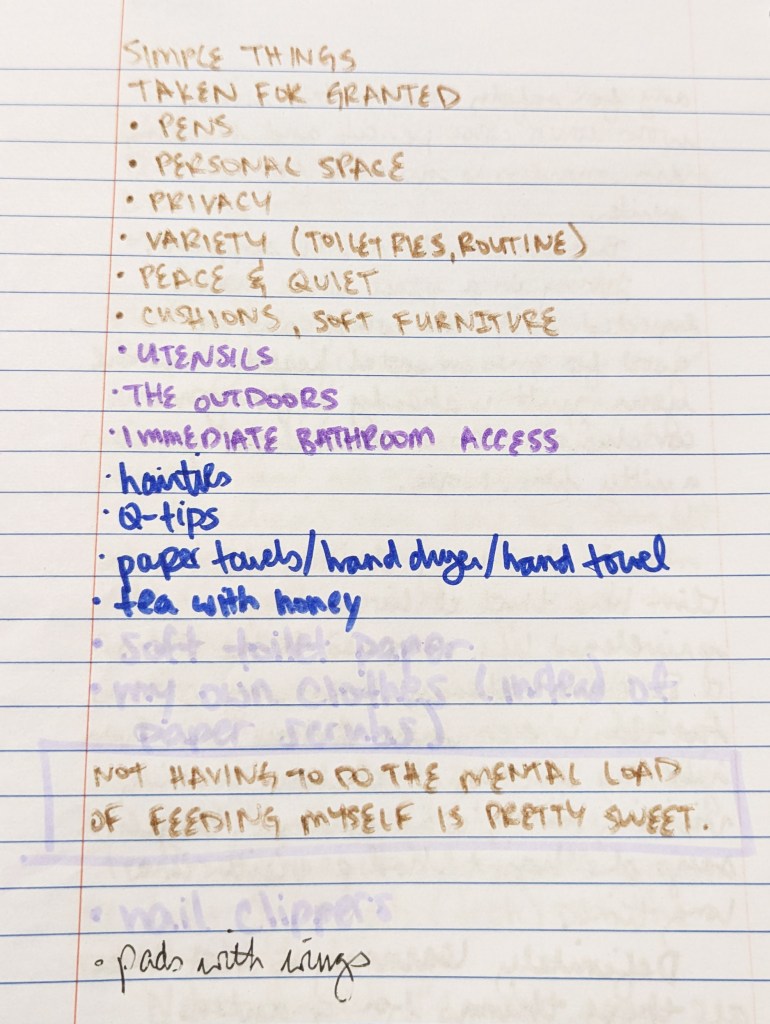 SIMPLE THINGS
TAKEN FOR GRANTED
• PENS
• PERSONAL SPACE
• PRIVACY
• VARIETY (TOILETRIES, ROUTINE)
• PEACE & QUIET
• CUSHIONS, SOFT FURNITURE
• UTENSILS
• THE OUTDOORS
• IMMEDIATE BATHROOM ACCESS
• hairties
• Q-tips
• paper towels/hand dryer/hand towel
• tea with honey
• soft toilet paper
• my own clothes (instead of
paper scrubs)
NOT HAVING TO DO THE MENTAL LOAD
OF FEEDING MYSELF IS PRETTY SWEET.
• nail clippers
• pads with wings